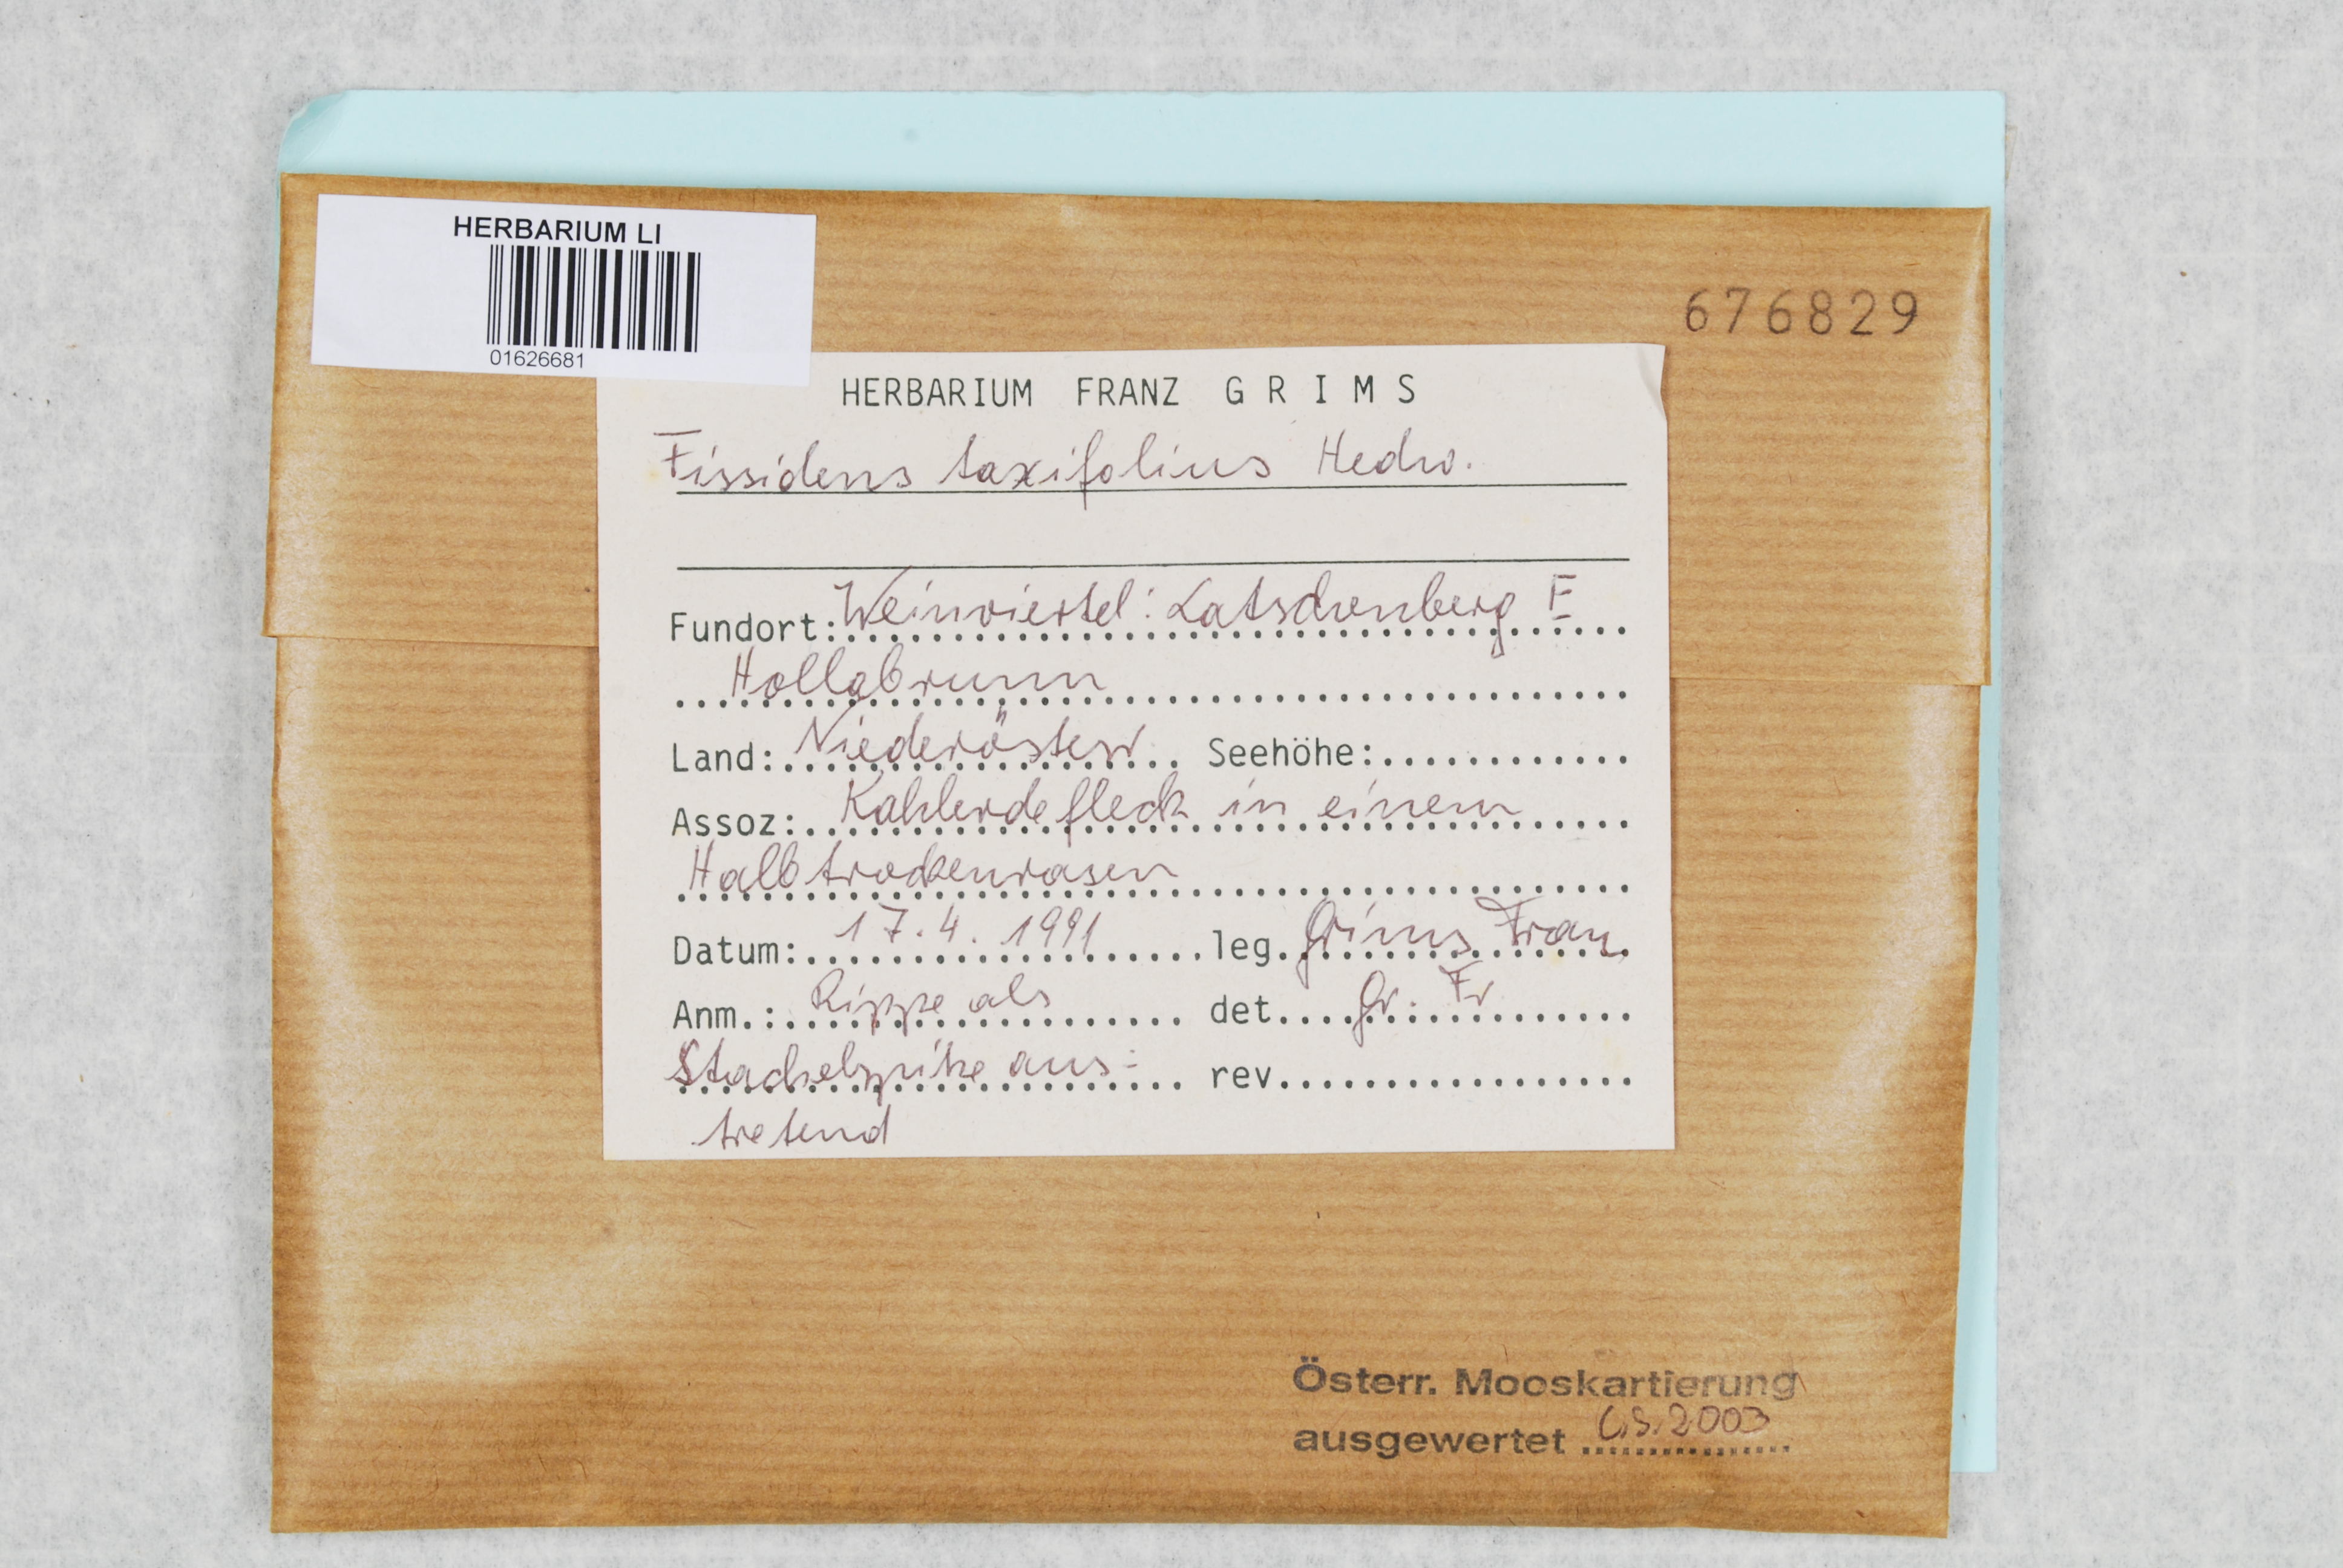 HERBARIUM LI
01626681
676829
HERBARIUM FRANZ GRIMS
Fissidens taxifolius Hedw.
Fundort: Weinviertel: Latschenberg E
Hollabrunn
Land: Niederösterr. Seehöhe:
Assoz: Kahlerdefleck in einem
Halbtrockenrasen
Datum: 17.4.1991 leg. Grims Franz
Anm.: Rippe als det. Gr. Fr
Stachelspitze aus-
rev.
tretend
Österr. Mooskartierung
ausgewertet 2003